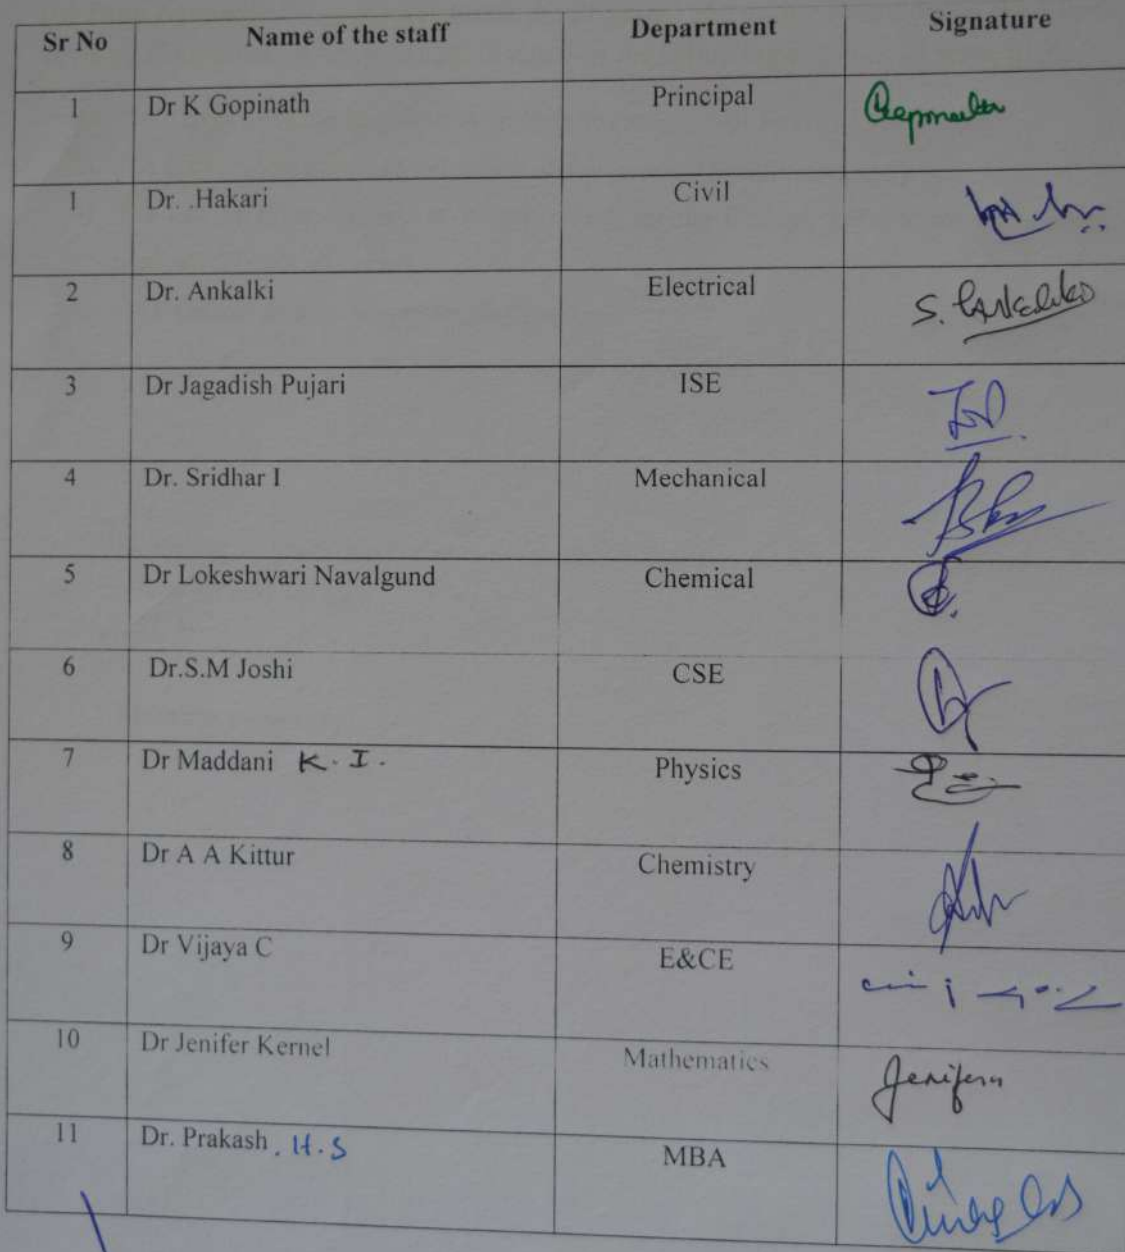 Sr No Name of the staff Department Signature
1 Dr K Gopinath Principal
1 Dr. .Hakari Civil
2 Dr. Ankalki Electrical S.
3 Dr Jagadish Pujari ISE
4 Dr. Sridhar I Mechanical
5 Dr Lokeshwari Navalgund Chemical
6 Dr.S.M Joshi CSE
7 Dr Maddani K. I. Physics
8 Dr A A Kittur Chemistry
9 Dr Vijaya C E&CE
10 Dr Jenifer Kernel Mathematics
11 Dr. Prakash . H.S MBA